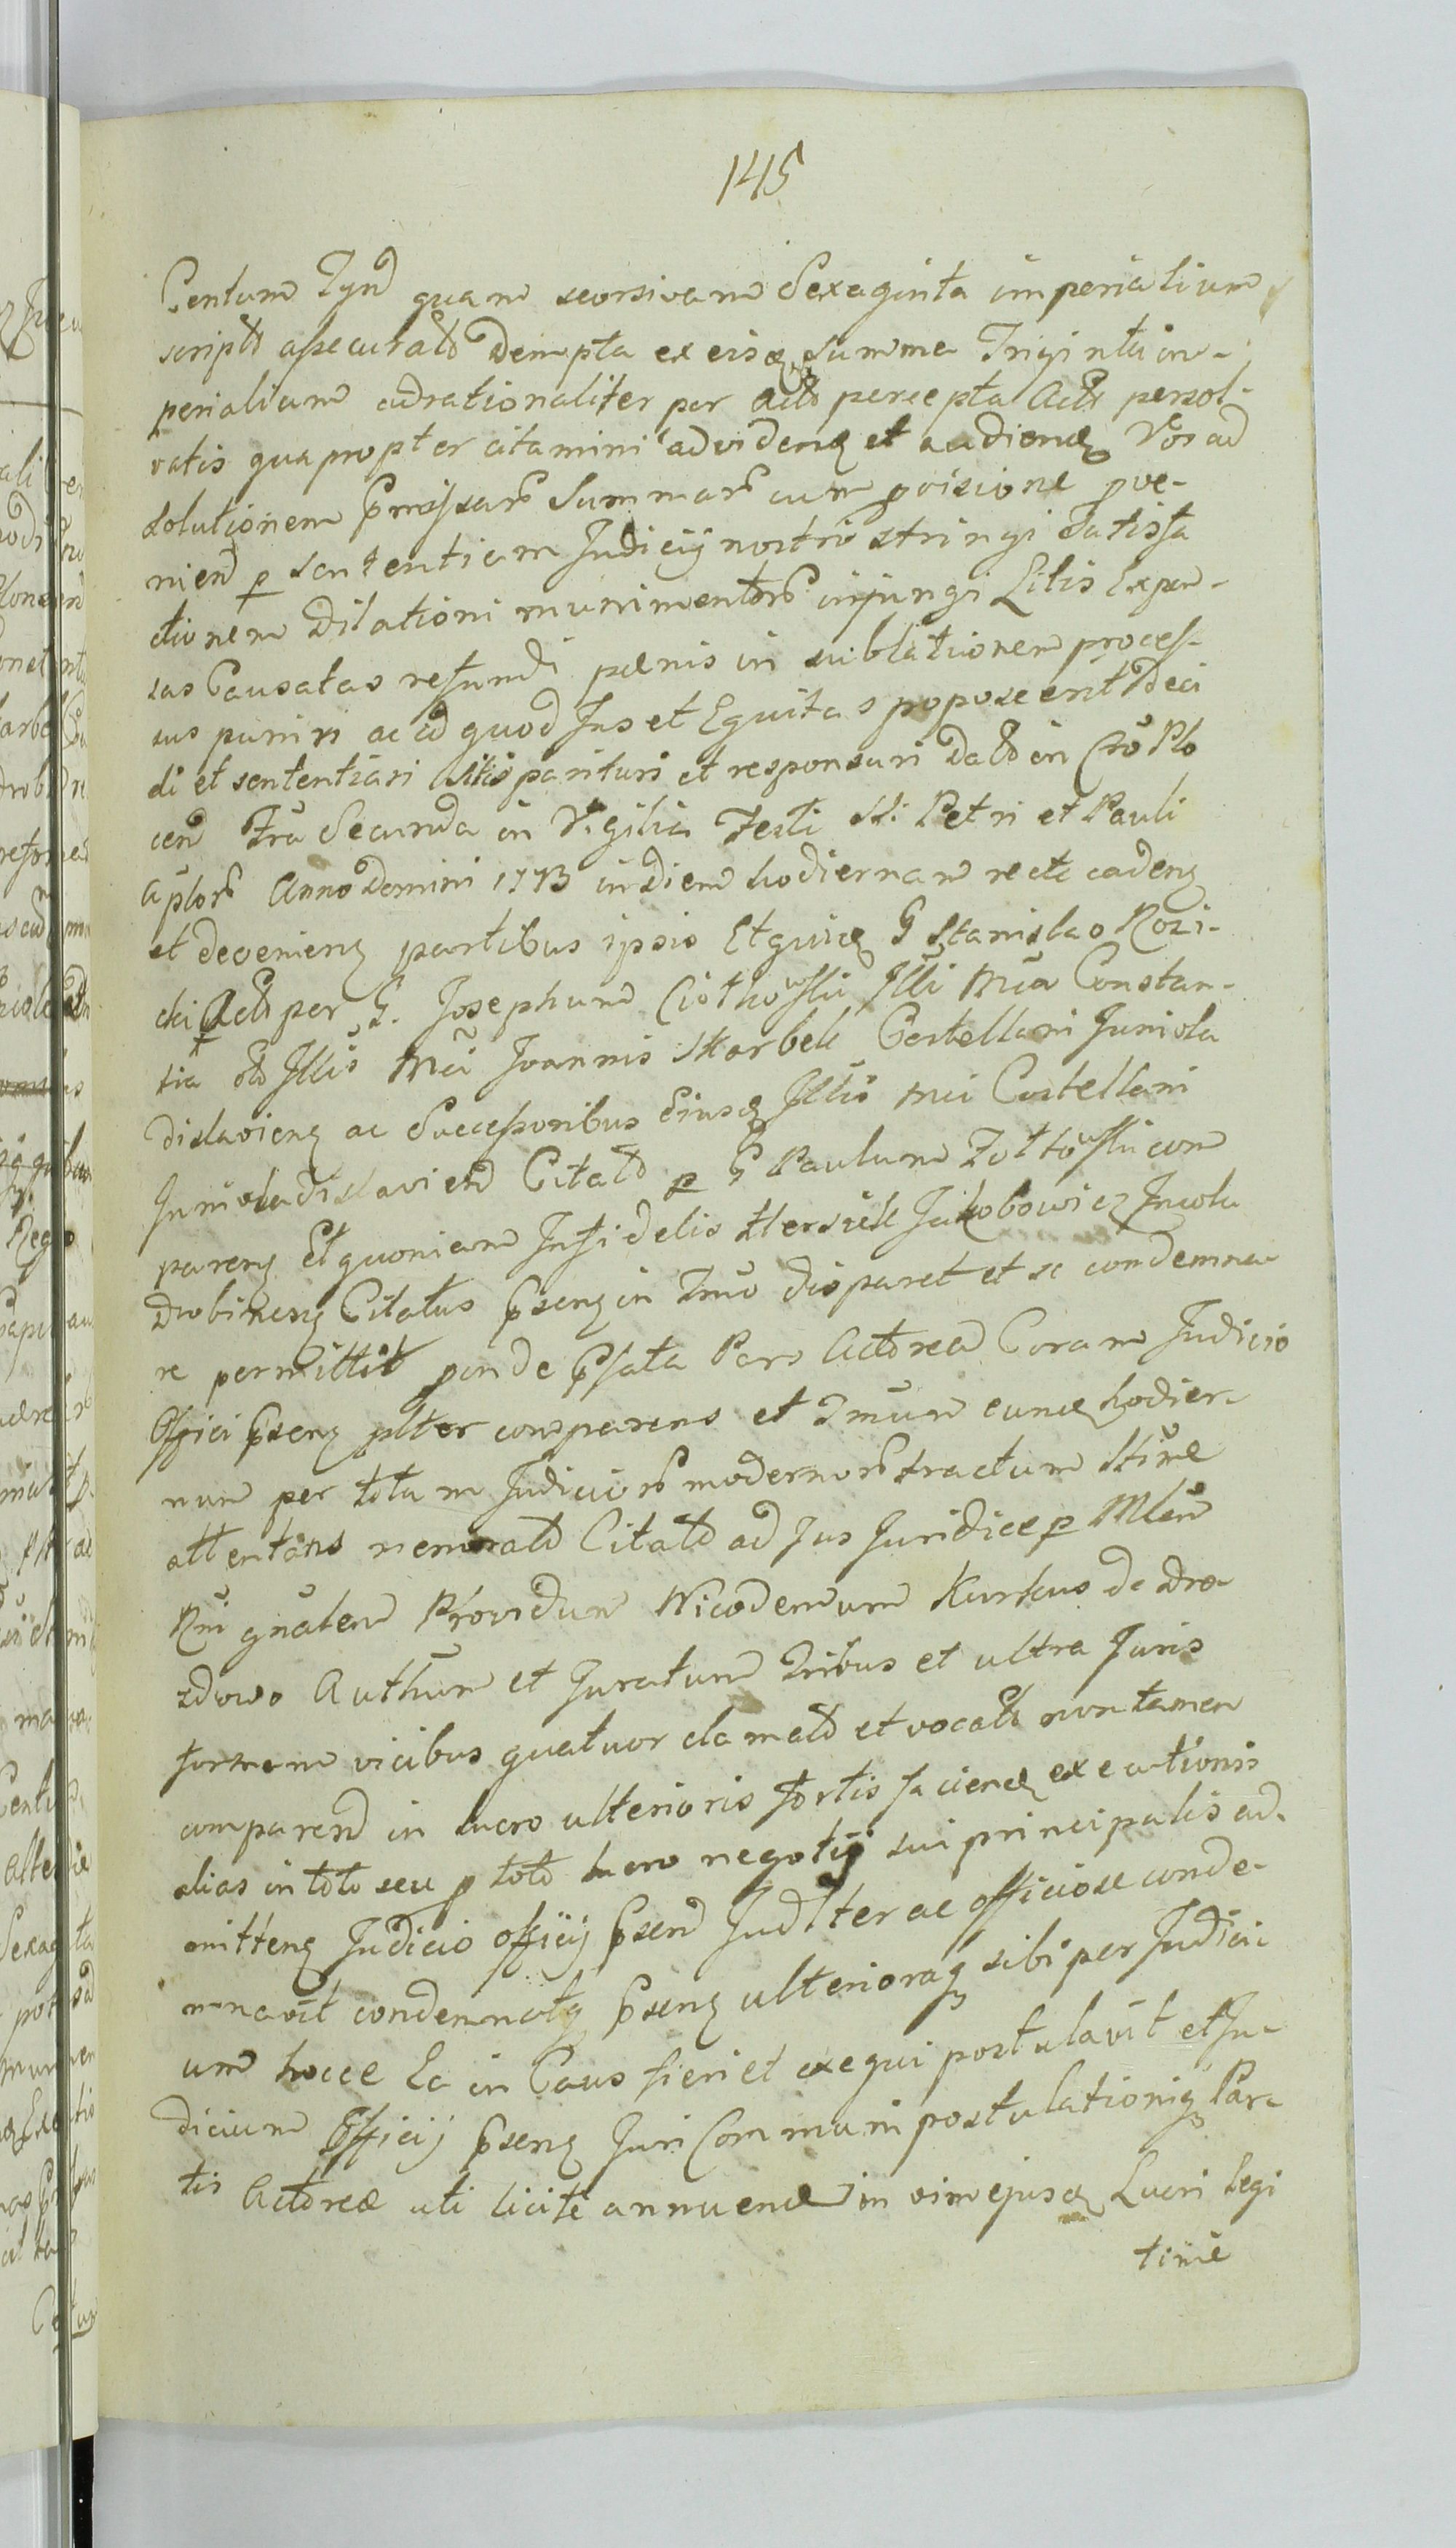 145
Centum Tynd quam seorsivam Sexaginta imperialium
script asecurato Dempta ex eisq Summa Triginta im-
perialium adrationaliter per Acto percepta Acti persol-
vatis quapropter citamini ad videnq et audienq Vos ad
solutionem pmissar Summar cum pvisione pve-
niend p sententiam Judicij nostri stringi Satisfa
ctionem Dilationi munimentor injungi Litis Expen-
sas Causatas refundi pænis in sublationem proces-
sus puniri ac id quod Jus et Equitas poposcerit Deci
di et sententiari Sitis parituri et responsuri Dato in Cro Plo
cen Fria Secunda in Vigilia Festi SS: Petri et Pauli
Aplor Anno Domini 1773 in Diem hodiernam recte cadenq
et devenienq partibus ipsis Et quia G Stanislao Rozi-
cki Acto per G. Josephum Ciotkowski Illi Mca Constan-
tia Illis Mci Joannis Skarbek Castellani Juniola
dislavienq ac Successoribus Ejusq Illis Mci Castellani
Juniovladislaviend Citato p G Paulum Zottowski com
parenq Et quoniam Infidelis Herszek Jakobowicz Incola
Drobinenq Citatus psenq in Tmo disparet et se condemna
re permittit perinde psata Pars Actorea Coram Judicio
Offici psenq plter comparens et Tmum eunq hodier-
num per totum Judicior modernor tractum Stime
attentans memorato Citato ad Jus Juridice p Mlem
Rni gnalem Providum Nicodemum Kurkus de Dro-
zdowo Authum et Juratum Tribus et ultra Juris
formam vicibus quatuor clamato et vocato non tamen
comparend in lucro ulterioris fortis faciend executionis
alias in toto seu p toto lucro negotij sui principalis ad-
mittenq Judicio officij psend Judlter ac officiose conde-
mnavit condemnatq psenq ulterioraq sibi per Judici-
um hocce Ea in Caus fieri et exequi postulavit et Ju-
dicium Officij psenq Juri Communi postulationiq Par-
tis Actoreæ uti licite annuend in vim ejusq Lucri legi
time